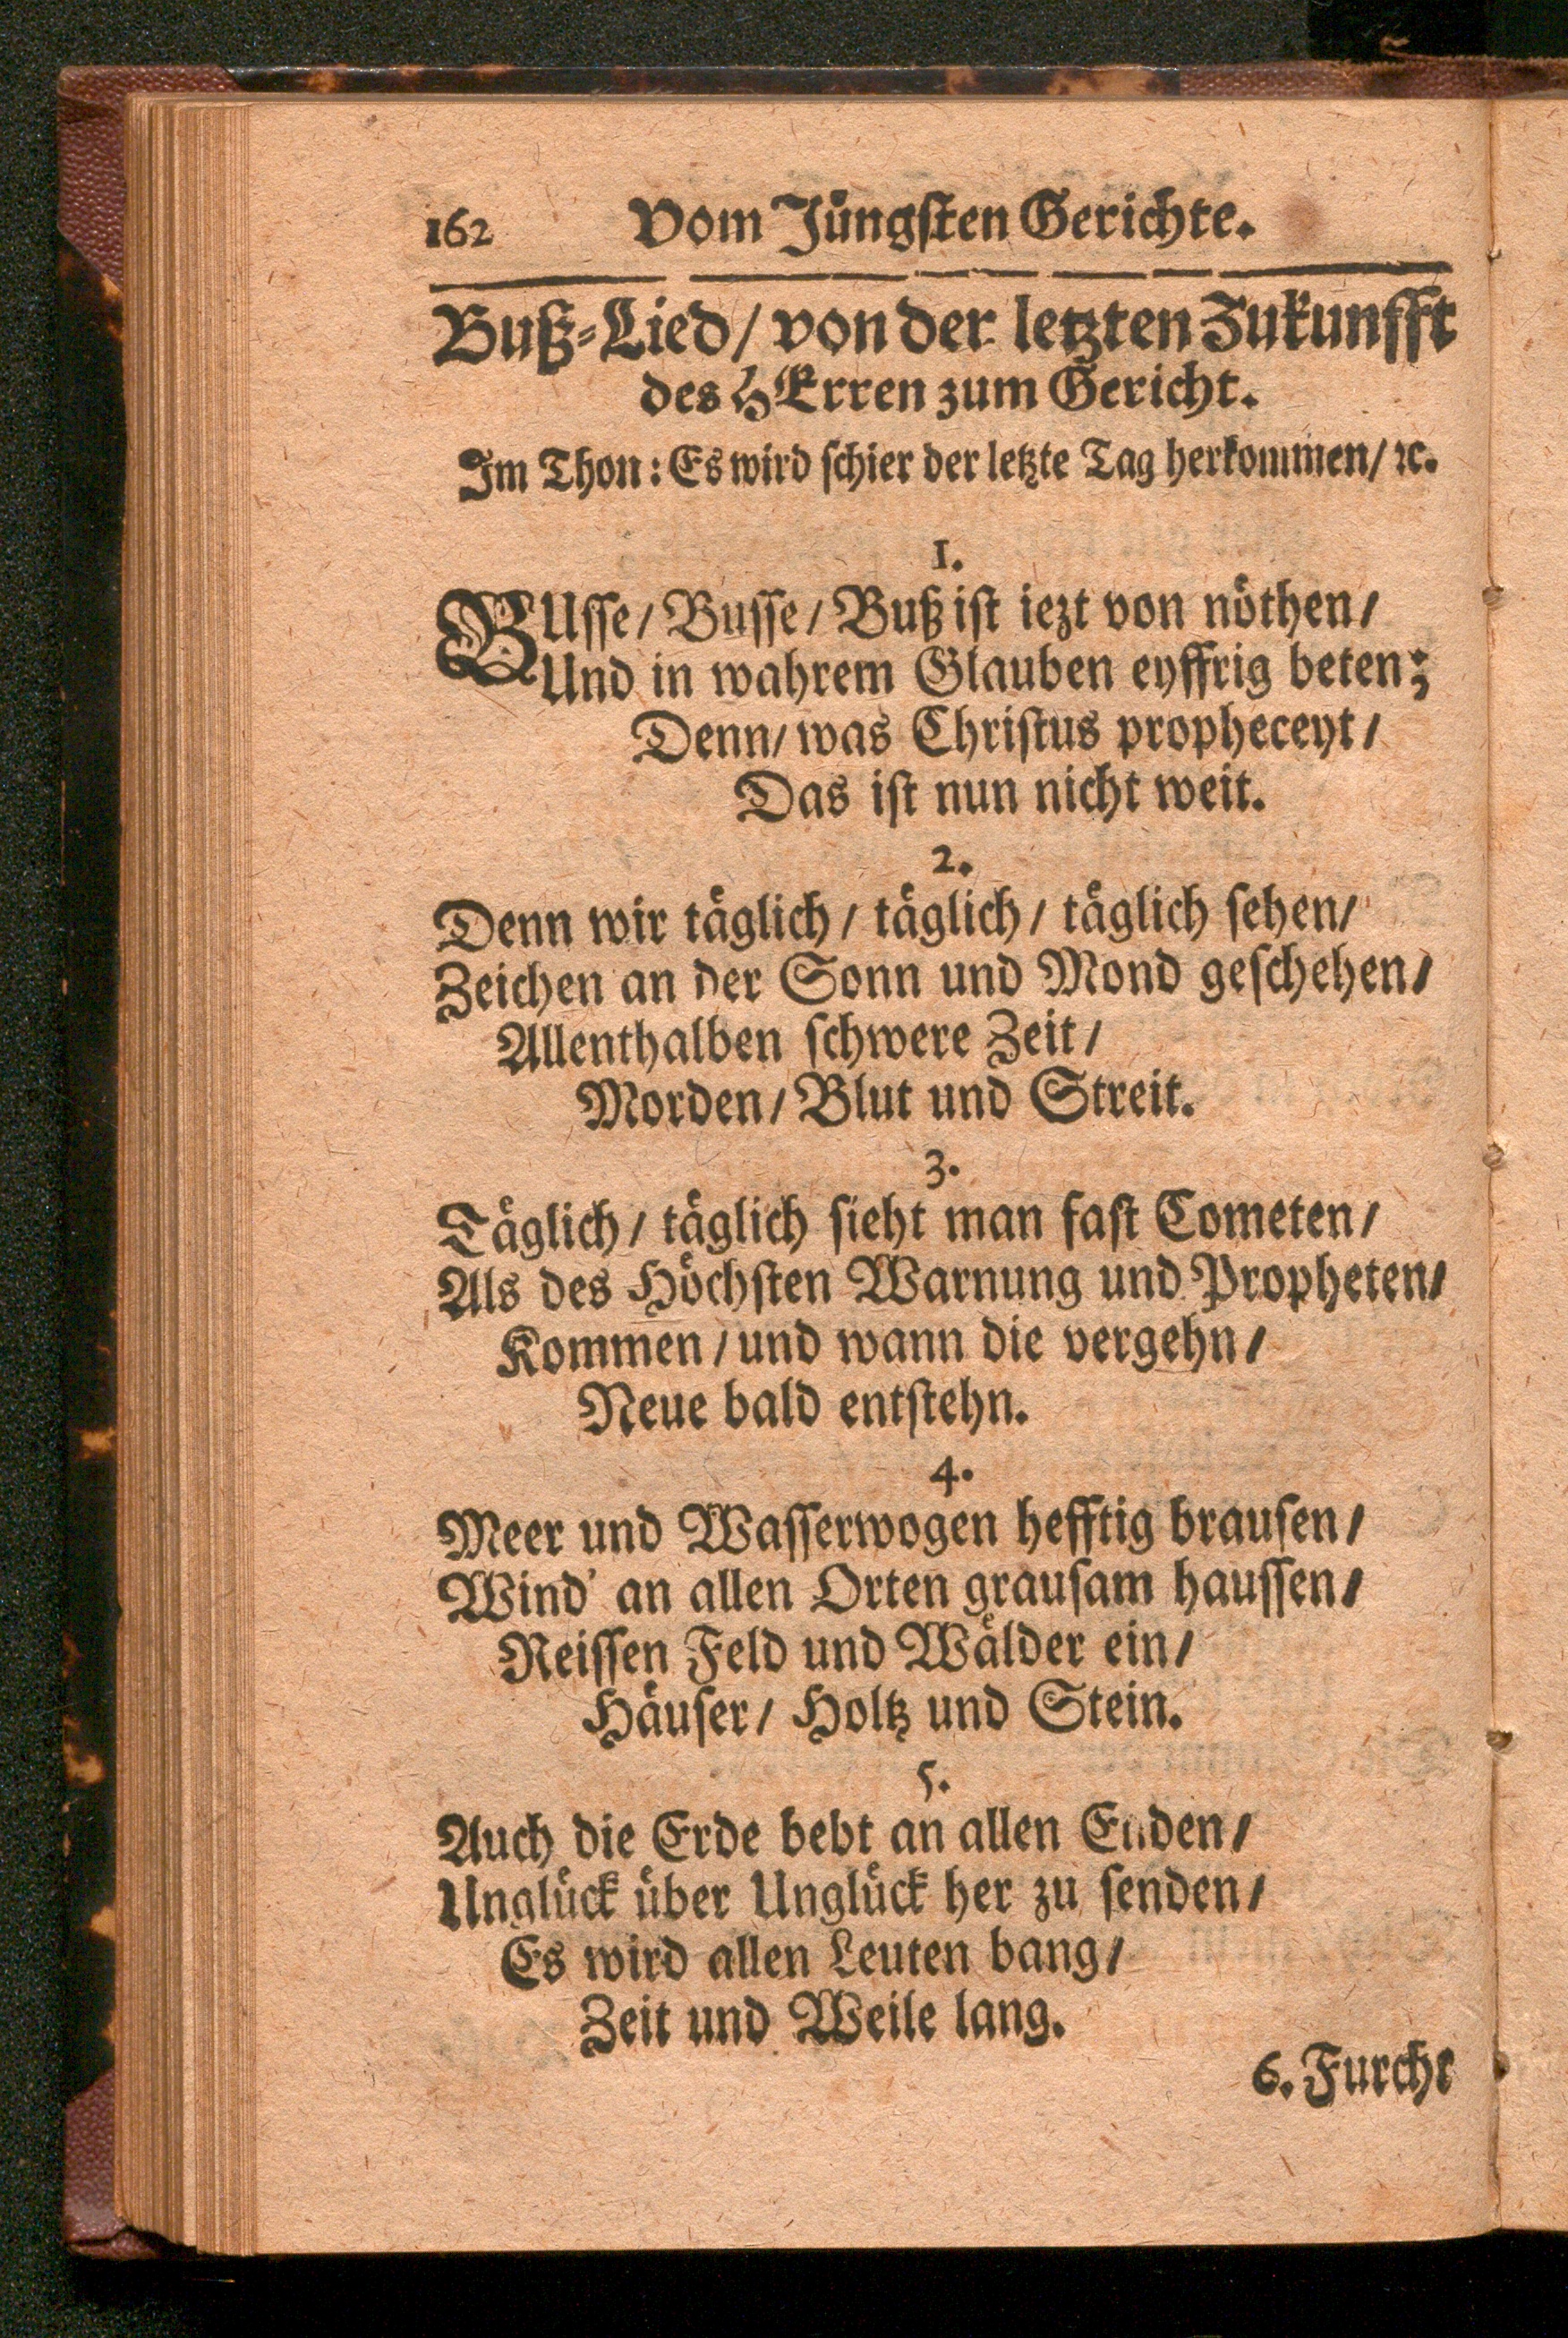 162 Vom Jüngsten Gerichte.
Buß-Lied/ von der letzten Zukunfft
des HErren zum Gericht.
Im Thon: Es wird schier der letzte Tag herkommen/ ꝛc.
1.
BUsse/ Busse/ Buß ist iezt von nöthen/
Und in wahrem Glauben eyffrig beten;
Denn/ was Christus propheceyt/
Das ist nun nicht weit.
2.
Denn wir täglich/ täglich/ täglich sehen/
Zeichen an der Sonn und Mond geschehen/
Allenthalben schwere Zeit/
Morden/ Blut und Streit.
3.
Täglich/ täglich sieht man fast Cometen/
Als des Höchsten Warnung und Propheten/
Kommen/ und wann die vergehn/
Neue bald entstehn.
4.
Meer und Wasserwogen hefftig brausen/
Wind' an allen Orten grausam haussen/
Reissen Feld und Wälder ein/
Häuser/ Holtz und Stein.
5.
Auch die Erde bebt an allen Enden/
Unglück über Unglück her zu senden/
Es wird allen Leuten bang/
Zeit und Weile lang.
6. Furcht